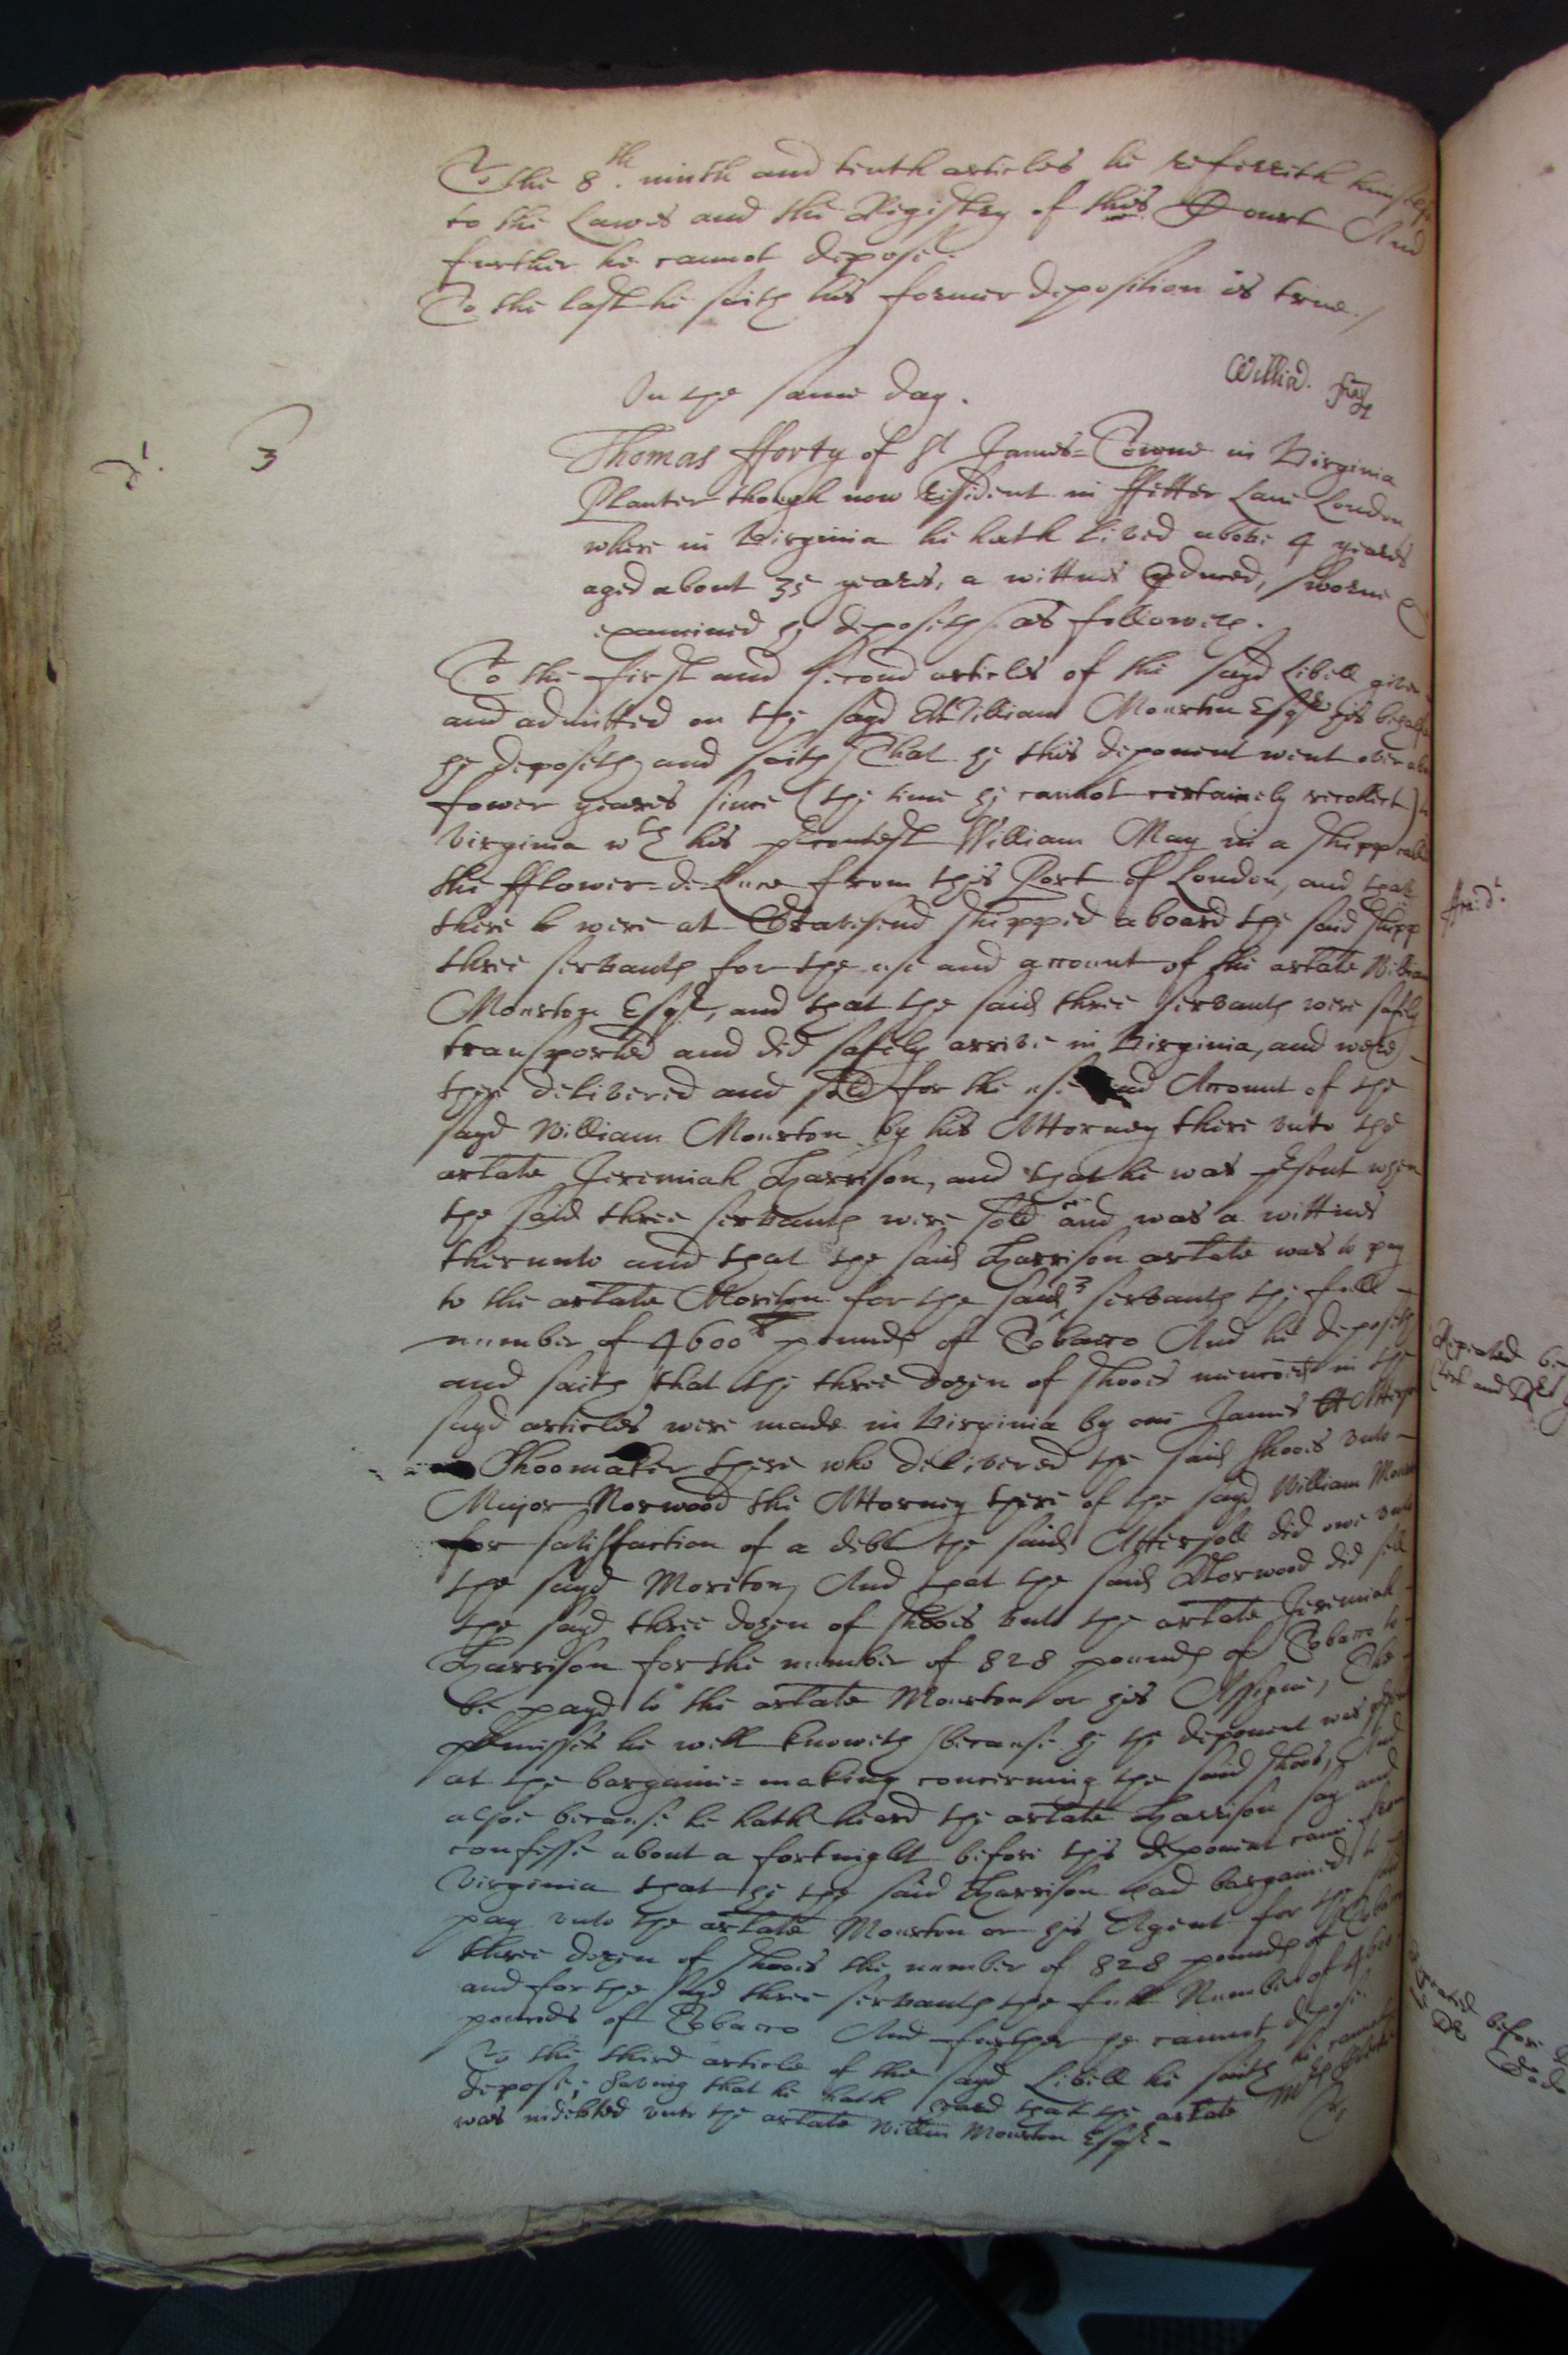 To the 8th. ninth and tenth articles he referreth himselfe
to the Lawes and the Registry of this Court And
further he cannot depose.
To the last he saith his former deposition is true./
Willia.
On the same day.
d1. 3
Thomas fforty of St James=Towne in Virginia
Planter though now resident in ffetter Lane London
where in Virginia he hath lived above 4 yeares
aged about 35 yeares, a wittnes produced, sworne &
examined he deposeth as followeth.
To the first and second articles of the sayd Libell given
and admitted on the sayd William Mourton Esqr his behalfe
he deposeth and saith That he this deponent went over about
fower yeares since (the time he cannot certainely recollect) to
Virginia wth his William May in a shipp called
the fflower=de=Luce from this Port of London, and that
there were at Gravesend shipped aboard the said shipp
three servants for the use and account of the arlate William
Mourton Esqr, and that the said three servants were safely
transported and did safely arrive in Virginia, and were
there delivered and sold for the use and Account of the
sayd William Mourton by his Attorney there unto the
arlate Jeremiah Harrison, and that he was psent when
the said three servants were sold and was a wittnes
thereunto and that the said Harrison arlate was to pay
to the arlate Moriton for the said 3 servants the full
number of 4600 pounds of Tobacco And he deposeth
and saith that the three dozen of shooes menconed in the
sayd articles were made in Virginia by one James
Shoomaker there who delivered the said shooes unto
Major Norwood the Attorney there of the sayd William Mourton
for satisfaction of a debt the said Attersoll did owe unto
the sayd Moriton, And that the said Norwood did sell
the sayd three dozen of shooes unto the arlate Jeremiah
Harrison for the number of 828 pounds of Tobacco to
be payd to the arlate Mourton or his Assigne, The
pmisses he well knoweth because he the deponent was psent
at the bargaine=making concerning the said shooes, And
alsoe because he hath heard the arlate Harrison say and
confesse about a fortnight before this deponent came from
Virginia that he the said Harrison had bargained to
pay unto the arlate Mourton or his Agent for the said
three dozen of shooes the number of 828 pounds of Tobacco
and for the sayd three servants the full Number of
pounds of Tobacco And further he cannot depose.
To the third article of the sayd Libell he saith he cannot
depose; Saving that he hath heard that the arlate
was indebted unto the arlate Willm Mourton Esqr.
Repeated